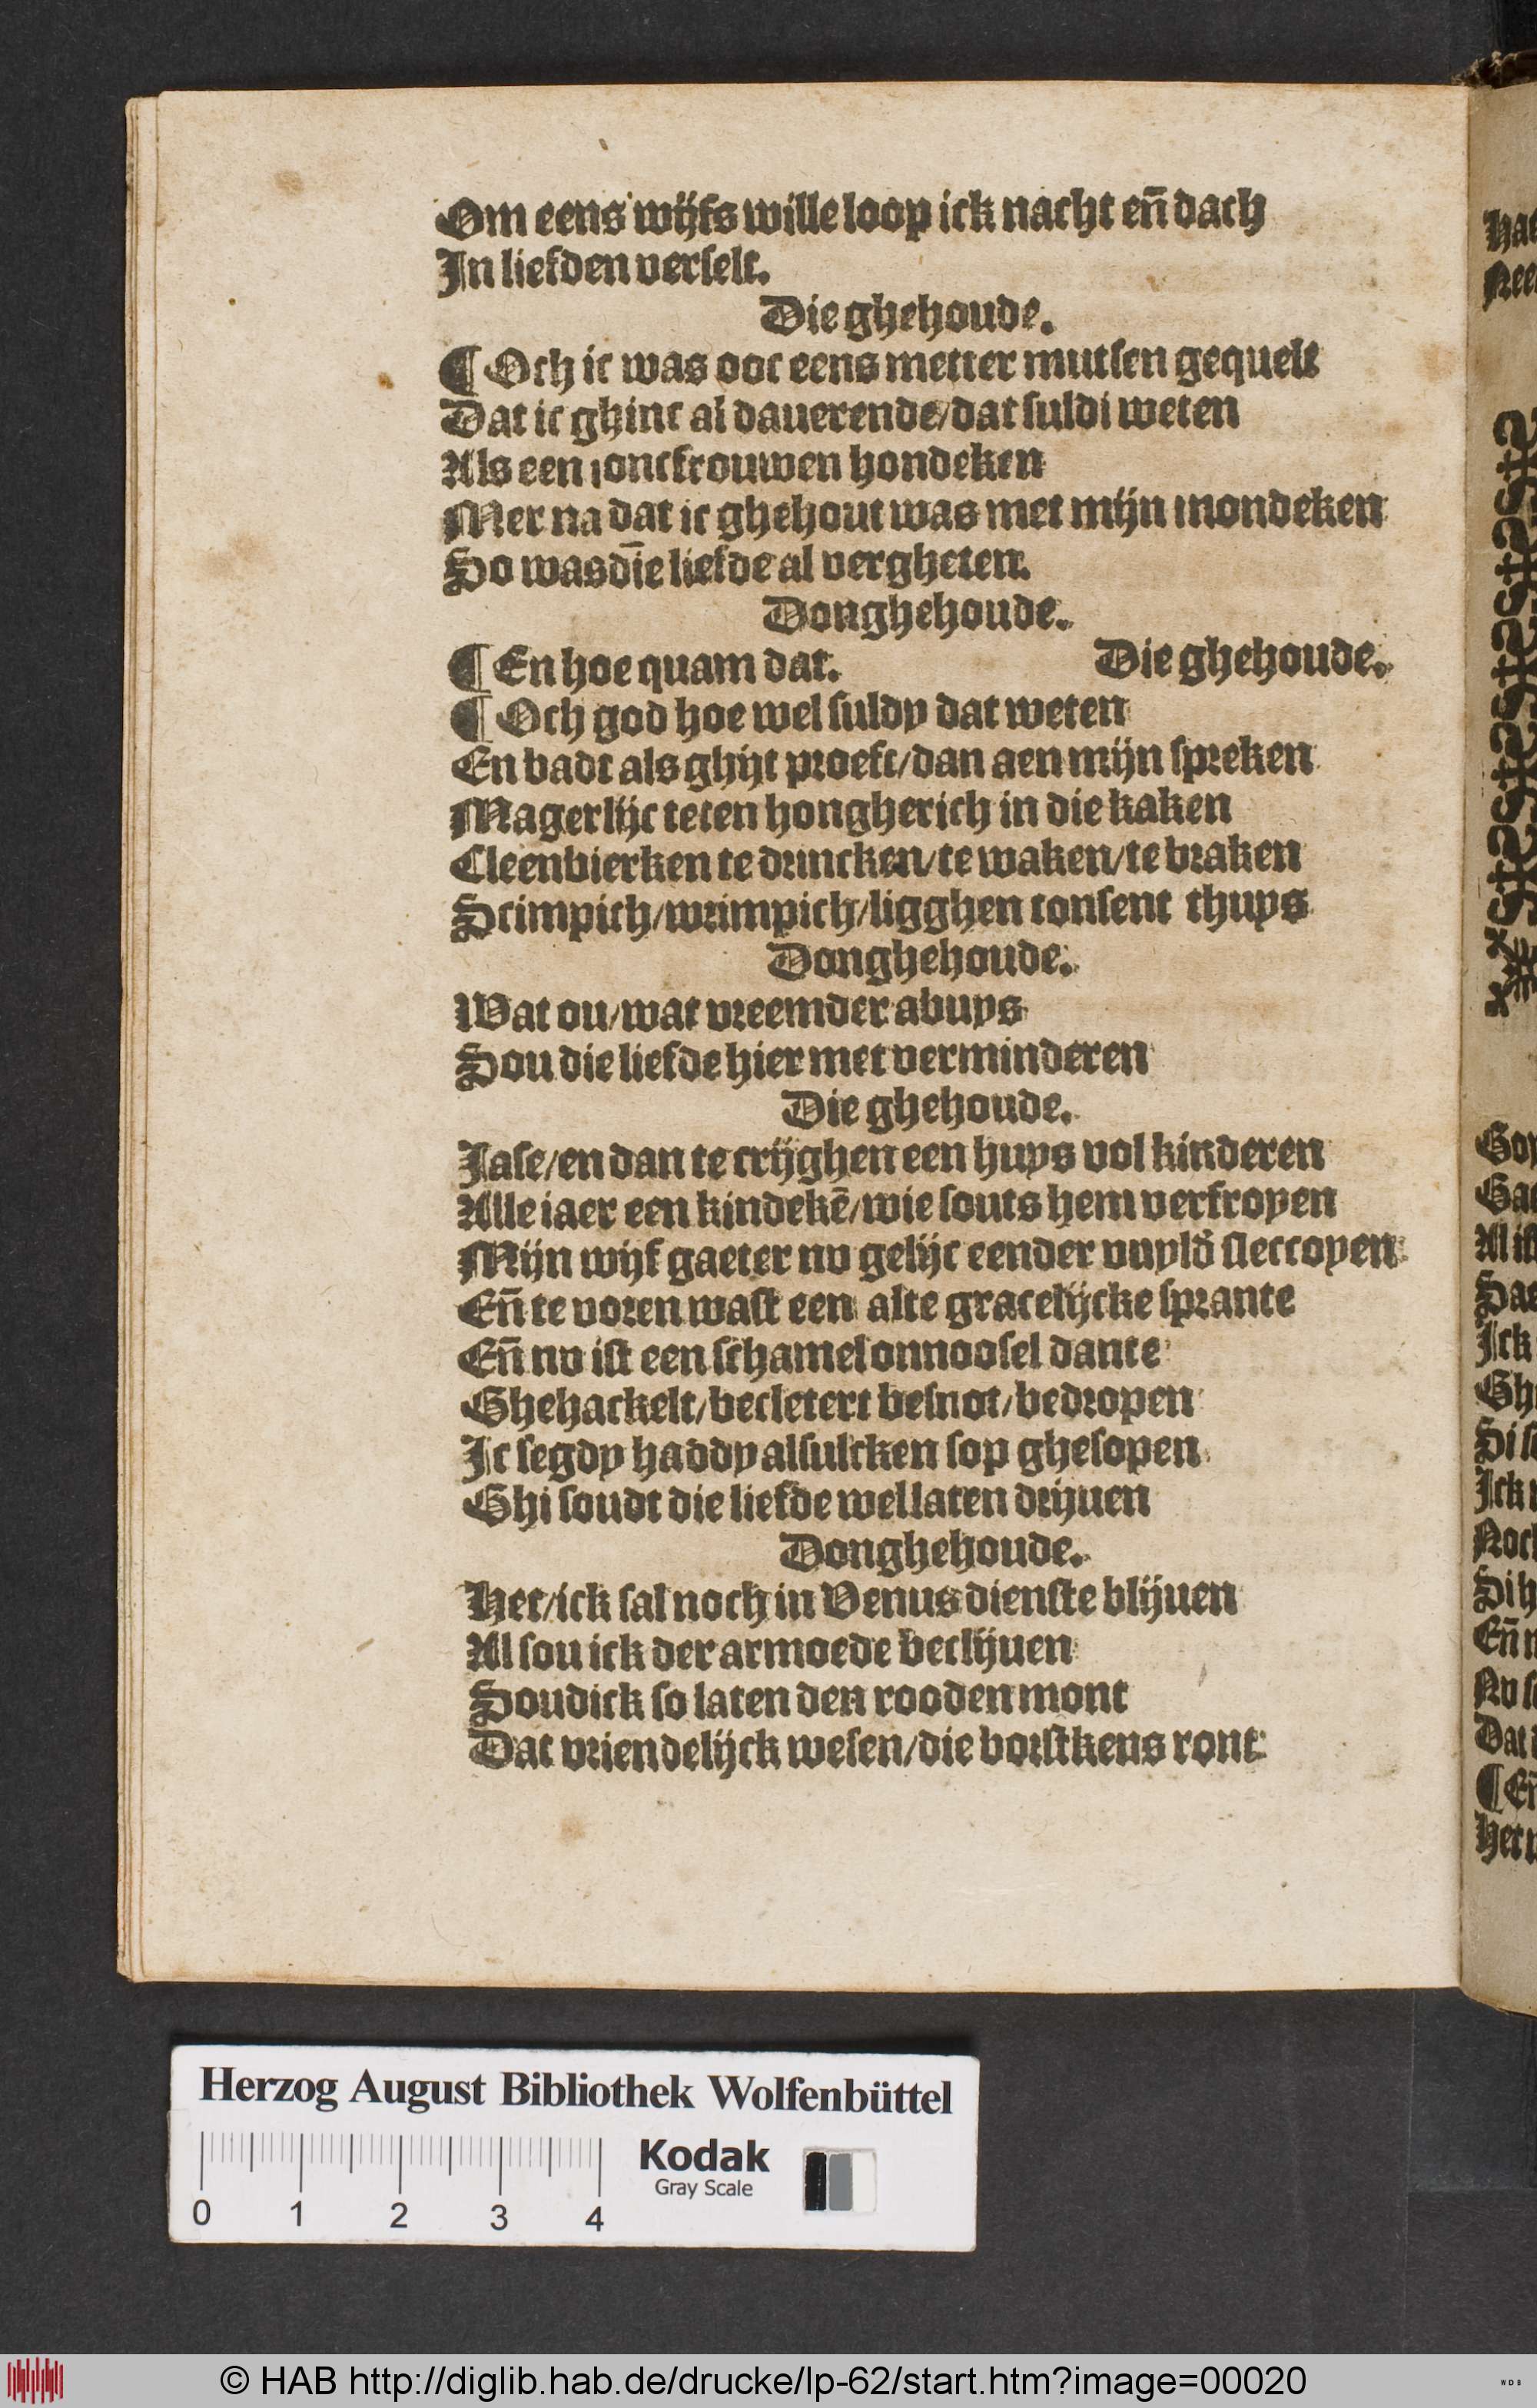 Om eens wijfs wille loop ick nacht en̄ dach
In liefden verselt.
Die ghehoude.
¶ Och ic was ooc eens metter mutsen gequelt
Dat ic ghinc al dauerende/dat suldi weten
Als een ionckrouwen hondeken
Mer na dat ic ghehout was met mijn mondeken
So was dīe liefde al vergheten.
Donghehoude.
¶ En hoe quam dat. Die ghehoude.
¶ Och god hoe wel suldy dat weten
En badt als ghijt proeft/dan aen mijn spreken
Magerlijc teten hongherich in die kaken
Cleenbierken te drincken/te waken/te braken
Scimpich/wrimpich/ligghen tonsent thuys
Donghehoude.
Wat ou/wat vreemder abuys
Sou die liefde hier met verminderen
Die ghehoude.
Jase/en dan te crijghen een huys vol kinderen
Alle iaer een kindekē/wie souts hem verfroyen
Mijn wijf gaeter nv gelijc eender vuyld̄ sleccoyen
En̄ te voren wast een alte gracelijcke sprante
En̄ nv ist een schamel onnoosel dante
Ghehackelt/becletert besnot/bedropen
Ic segdy haddy alsulcken sop ghesopen
Ghi soudt die liefde wel laten drijuen
Donghehoude.
Het/ick sal noch in Venus dienste blijuen
Al sou ick der armoede beclijuen
Soudick so laten den rooden mont
Dat vriendelijck wesen/die borstkens ront
Herzog August Bibliothek Wolfenbüttel
Kodak
Gray Scale
0 1 2 3 4
© HAB http://diglib.hab.de/drucke/lp-62/start.htm?image=00020
WDB